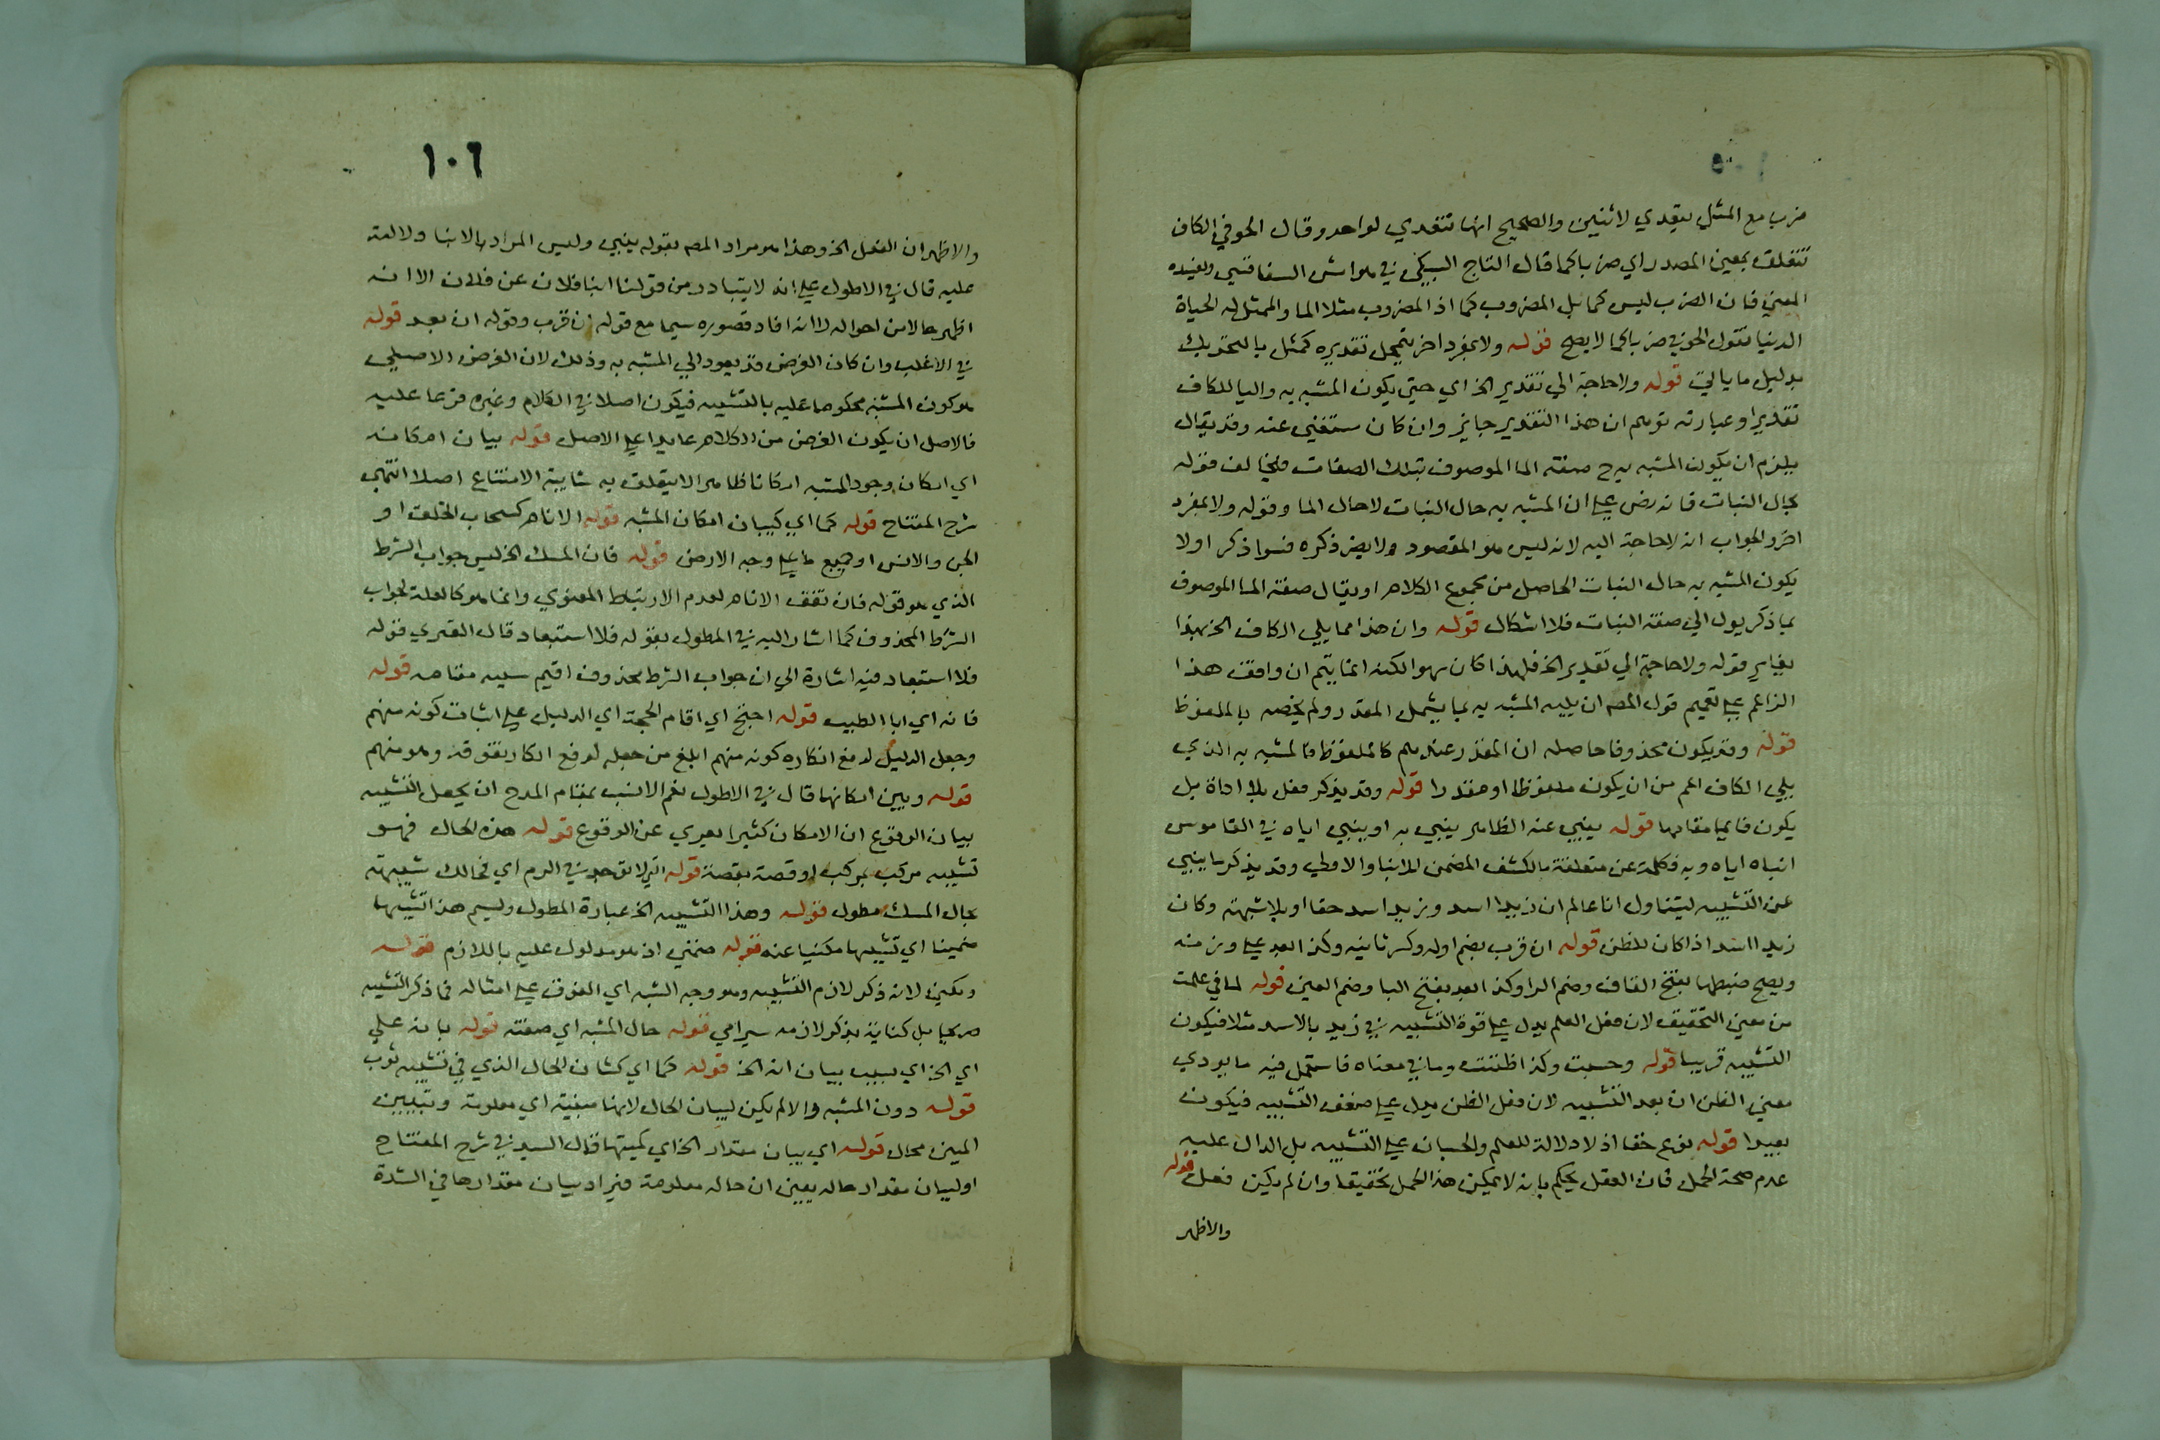 ضرب مع المثل يتعدي لاثنين والصحيح انها تتعدي لواحد وقال الحوفي الكاف
تتعلق بمعني المصدر اي ضربا كما قال التاج السبكي في هوامش السفاقسي ويفيده
المعني فان الضرب ليس كما بل المضروب كما اذ المضروب مثلا الما والممثل له الحياة
الدنيا فقول الحوفي ضربا كما لا يصح قوله ولا بمفرد اخر يتمحل تقديره كمثل بالتحريك
بدليل ما ياتي قوله ولا حاجة الي تقدير الخ اي حتي يكون المشبه به واليا للكاف
تقديرا وعبارته توهم ان هذا التقدير جايز وان كان مستغني عنه وقد يقال
يلزم ان يكون المشبه به ح صفة الما الموصوف بتلك الصفات فيخالف قوله
بحال النبات فانه نص علي ان المشبه به حال النبات لا حال الما وقوله ولا بمفرد
اخر والجواب انه لا حاجة اليه لانه ليس هو المقصود ولا يضر ذكره فسوا ذكر اولا
يكون المشبه به حال النبات الحاصل من مجموع الكلام او يقال صفة الما الموصوف
بما ذكر يول الي صفة النبات فلا اشكال قوله وان هذا مما يلي الكاف الخ بهذا
يغاير قوله ولا حاجة الي تقدير الخ فلهذا كان سهوا لكنه انما يتم ان وافق هذا
الزاعم علي تعميم قول المصه ان يليه المشبه به بما يشمل المقدر ولم يخصه بالملفوظ
قوله وقد يكون محذوفا حاصله ان المقدر عندهم كالملفوظ فالمشبه به الذي
يلي الكاف اعم من ان يكون ملفوظا او مقدرا قوله وقد يذكر فعل بلا اداة بل
يكون قايما مقامها قوله ينبي عنه الظاهر ينبي به او ينبي اياه في القاموس
انباه اياه وبه فكلمة عن متعلقة بالكشف المضمن للانبا والاولي وقد يذكر ما ينبي
عن التشبيه ليتناول انا عالم ان زيدا اسد وزيد اسد حقا او بلا شبهة وكان
زيدا اسد اذا كان للظن قوله ان قرب بضم اوله وكسر ثانيه وكذا ابعد علي وزنه
ويصح ضبطها بفتح القاف وضم الرا وكذا ابعد بفتح البا وضم العين قوله لما في علمت
من معني التحقيق لان فعل العلم يدل علي قوة التشبيه في زيد بالاسد مثلا فيكون
التشبيه قريبا قوله وحسبت وكذا ظننت وما في معناه فاستعمل فيه ما يودي
معني الظن ان بعد التشبيه لان فعل الظن يدل علي ضعف التشبيه فيكون
بعيدا قوله نوع خفا اذ لا دلالة للعلم والحسبان علي التشبيه بل الدال عليه
عدم صحة الحمل فان العقل يحكم بانه لا يمكن هذا الحمل تحقيقا وان لم يكن فعل قوله
والاظهر
١٠٦
والاظهر ان الفعل الخ وهذا هو مراد المصه بقوله ينبي وليس المراد بالانبا ولالفته
عليه قال في الاطول علي انه لا يتبادر من قولنا انبا فلان عن فلان الا انه
اظهر حالا من احواله لا انه افاد قصوره سيما مع قوله ان قرب وقوله ان بعد قوله
في الاغلب وان كان الغرض قد يعود الي المشبه به وذلك لان الغرض الاصلي
هو كون المشبه محكوما عليه بالتشبيه فيكون اصلا في الكلام وغيره فرعا عليه
فالاصل ان يكون الغرض من الكلام عايدا علي الاصل قوله بيان امكانه
اي امكان وجود المشبه امكانا ظاهرا لا يتعلق به شايبة الامتناع اصلا انتهي
شرح المفتاح قوله كما اي كبيان امكان المشبه قوله الانام كسحاب الخلق او
الجن والانس او جميع ما علي وجه الارض قوله فان المسك الخ ليس جواب الشرط
الذي هو قوله فان تفق الانام لعدم الارتباط المعنوي وانما هو كالعلة لجواب
الشرط المحذوف كما اشار اليه في المطول بقوله فلا استبعاد قال الفنري قوله
فلا استبعاد فيه اشارة الي ان جواب الشرط محذوف اقيم سببه مقامه قوله
فانه اي ابا الطيب قوله احتج اي اقام الحجة اي الدليل علي اثبات كونه منهم
وجعل الدليل لدفع انكاره كونه منهم ابلغ من جعله لدفع انكار تفوقه وهو منهم
قوله وبين امكانها قال في الاطول نعم الانسب بمقام المدح ان يجعل التشبيه
بيان الوقوع ان الامكان كثيرا يعري عن الوقوع قوله هذه الحال فهو
تشبيه مركب بمركب او قصة بقصة قوله التي لا توجد في الدم اي فحالك شبيهة
بحال المسك مطول قوله وهذا التشبيه الخ عبارة المطول وليسم هذا تشبيها
ضمنيا اي تشبيها مكنيا عنه قوله ضمني اذ هو مدلول عليه باللازم قوله
ومكني لانه ذكر لازم التشبيه وهو وجه الشبه اي الفوق علي امثاله فما ذكر التشبيه
صريحا بل كناية بذكر لازمه سيرامي قوله حال المشبه اي صفته قوله بانه علي
اي الخ اي بسبب بيان انه الخ قوله كما اي كشان الحال الذي في تشبيه ثوب
قوله دون المشبه والا لم يكن لبيان الحال لانها مبنية اي معلومة وتبيين
المبين محال قوله اي بيان مقدار الخ اي كميتها قال السيد في شرح المفتاح
او لبيان مقدار حاله يعني ان حاله معلومة فيراد بيان مقدارها في الشدة